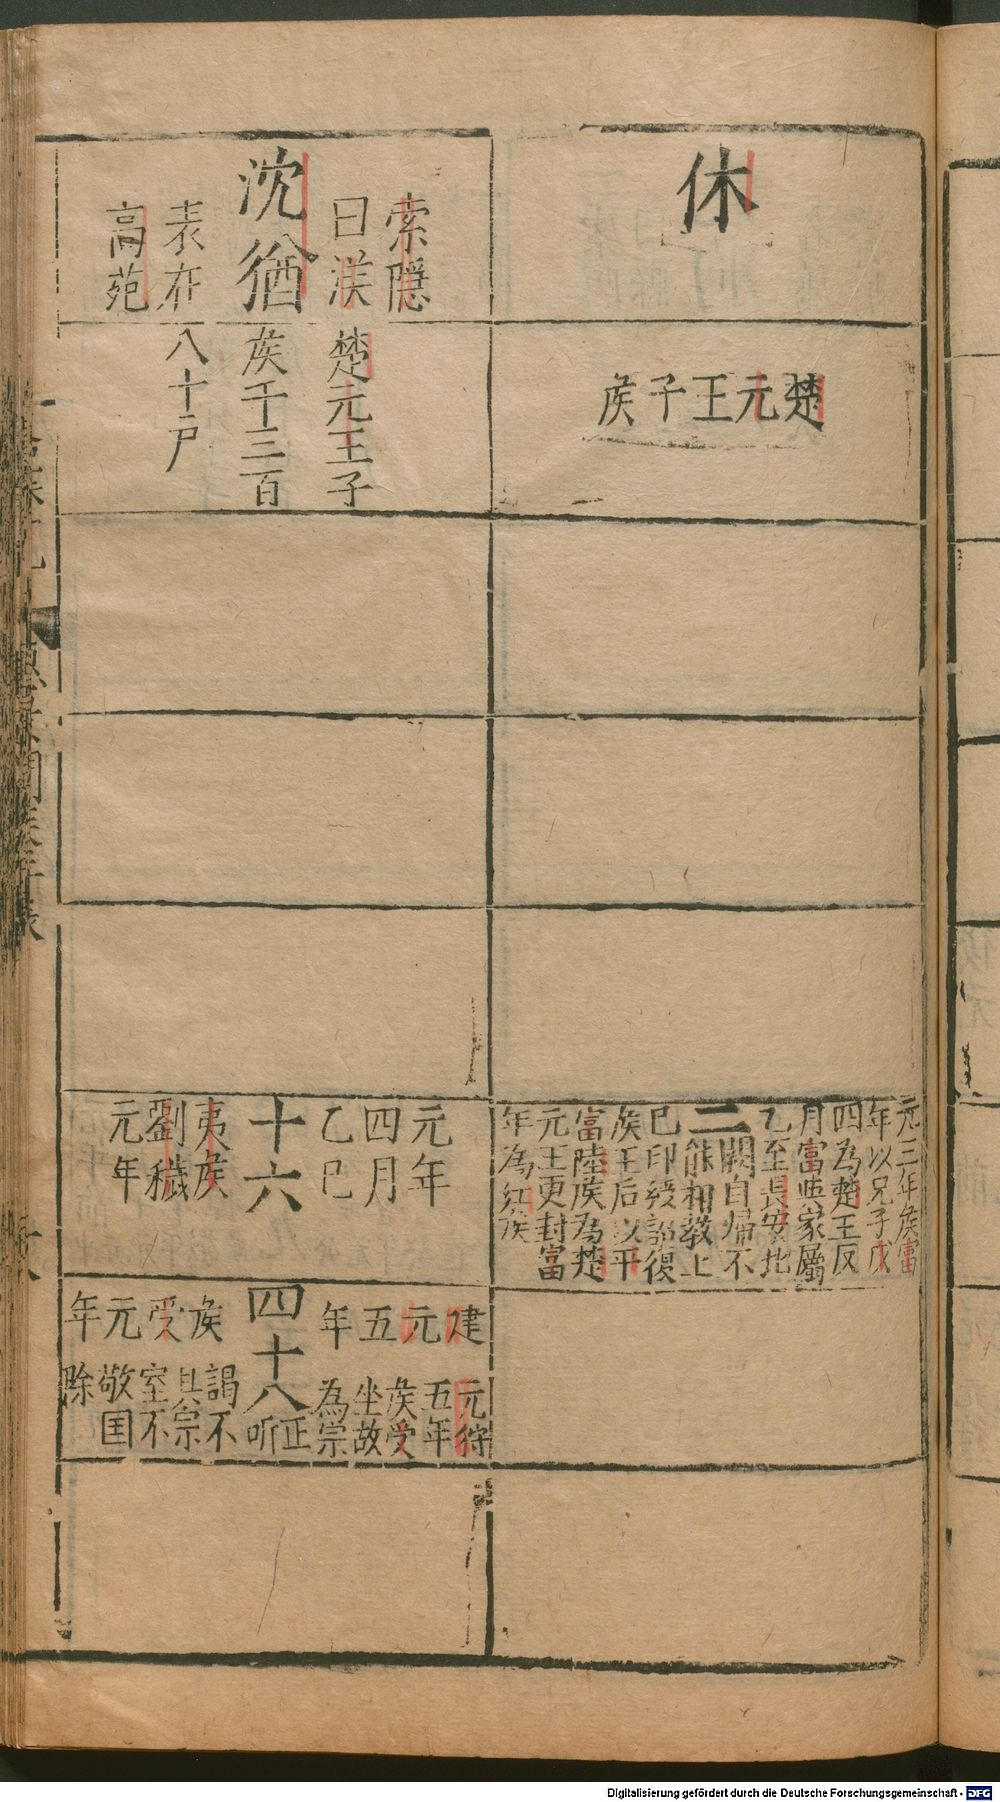 休
楚元王子侯
元三年侯富
年以兄子戊
四為楚王反
月富與家屬
乙至長安北
二
闕自歸不
能相教上
巳印綬詔復
侯王后以平
富陸侯為楚
元王更封富
年為紅侯
索隱
曰漢
沈猶
表在
高苑
楚元王子
侯千三百
八十戶
元年
四月
乙巳
十六
夷侯
劉穢
元年
建元五年
四十八
侯受元年
元狩
五年
侯受
坐故
為宗
正听
謁不
具宗
室不
敬国
除
Digitalisierung gefördert durch die Deutsche Forschungsgemeinschaft - DFG